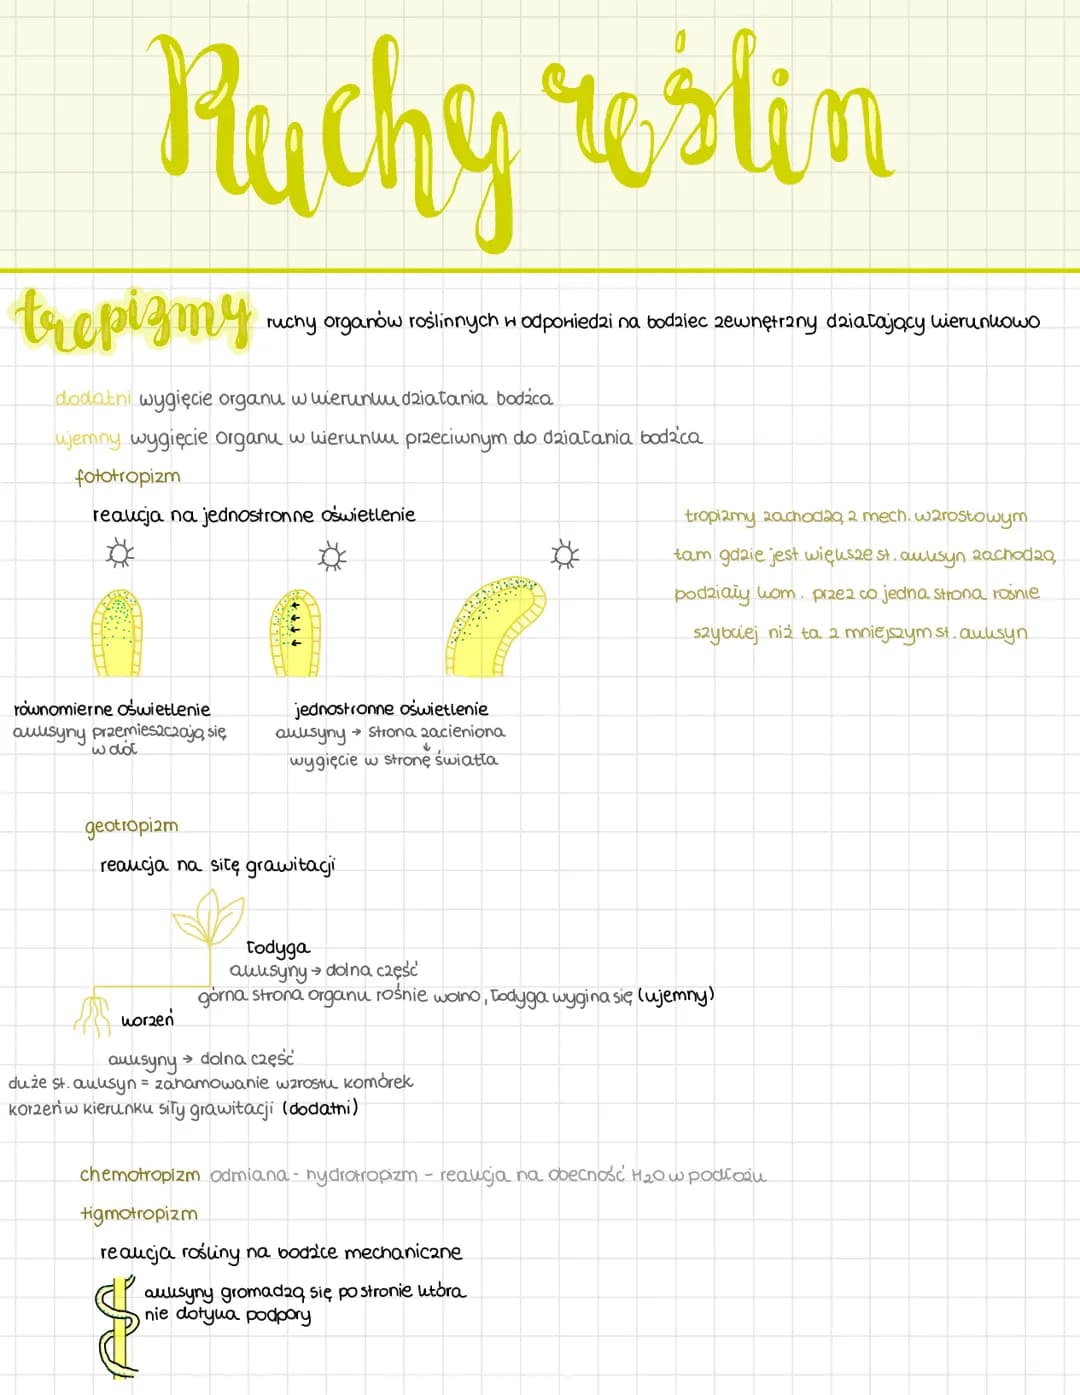 Ruchy roślin
tropizmy ruchy organów roślinnych w odpowiedzi na bodziec zewnętrzny działający kierunkowo
dodatni wygięcie organu w kierunku działania bodźca
ujemny wygięcie organu w kierunku przeciwnym do działania bodźca
fototropizm
reakcja na jednostronne oświetlenie
tropizmy zachodzą z mech. wzrostowym
tam gdzie jest większe st. auksyn zachodzą
podziały kom. przez co jedna strona rośnie
szybciej niż ta z mniejszym st. auksyn
równomierne oświetlenie
auksyny przemieszczają się
w dół
jednostronne oświetlenie
auksyny → strona zacieniona
↓
wygięcie w stronę światła
geotropizm
reakcja na siłę grawitacji
łodyga
auksyny → dolna część
górna strona organu rośnie wolno, łodyga wygina się (ujemny)
korzeń
auksyny → dolna część
duże st. auksyn = zahamowanie wzrostu komórek
korzeń w kierunku siły grawitacji (dodatni)
chemotropizm odmiana - hydrotropizm - reakcja na obecność H₂O w podłożu
tigmotropizm
reakcja rośliny na bodźce mechaniczne
auksyny gromadzą się po stronie która
nie dotyka podpory